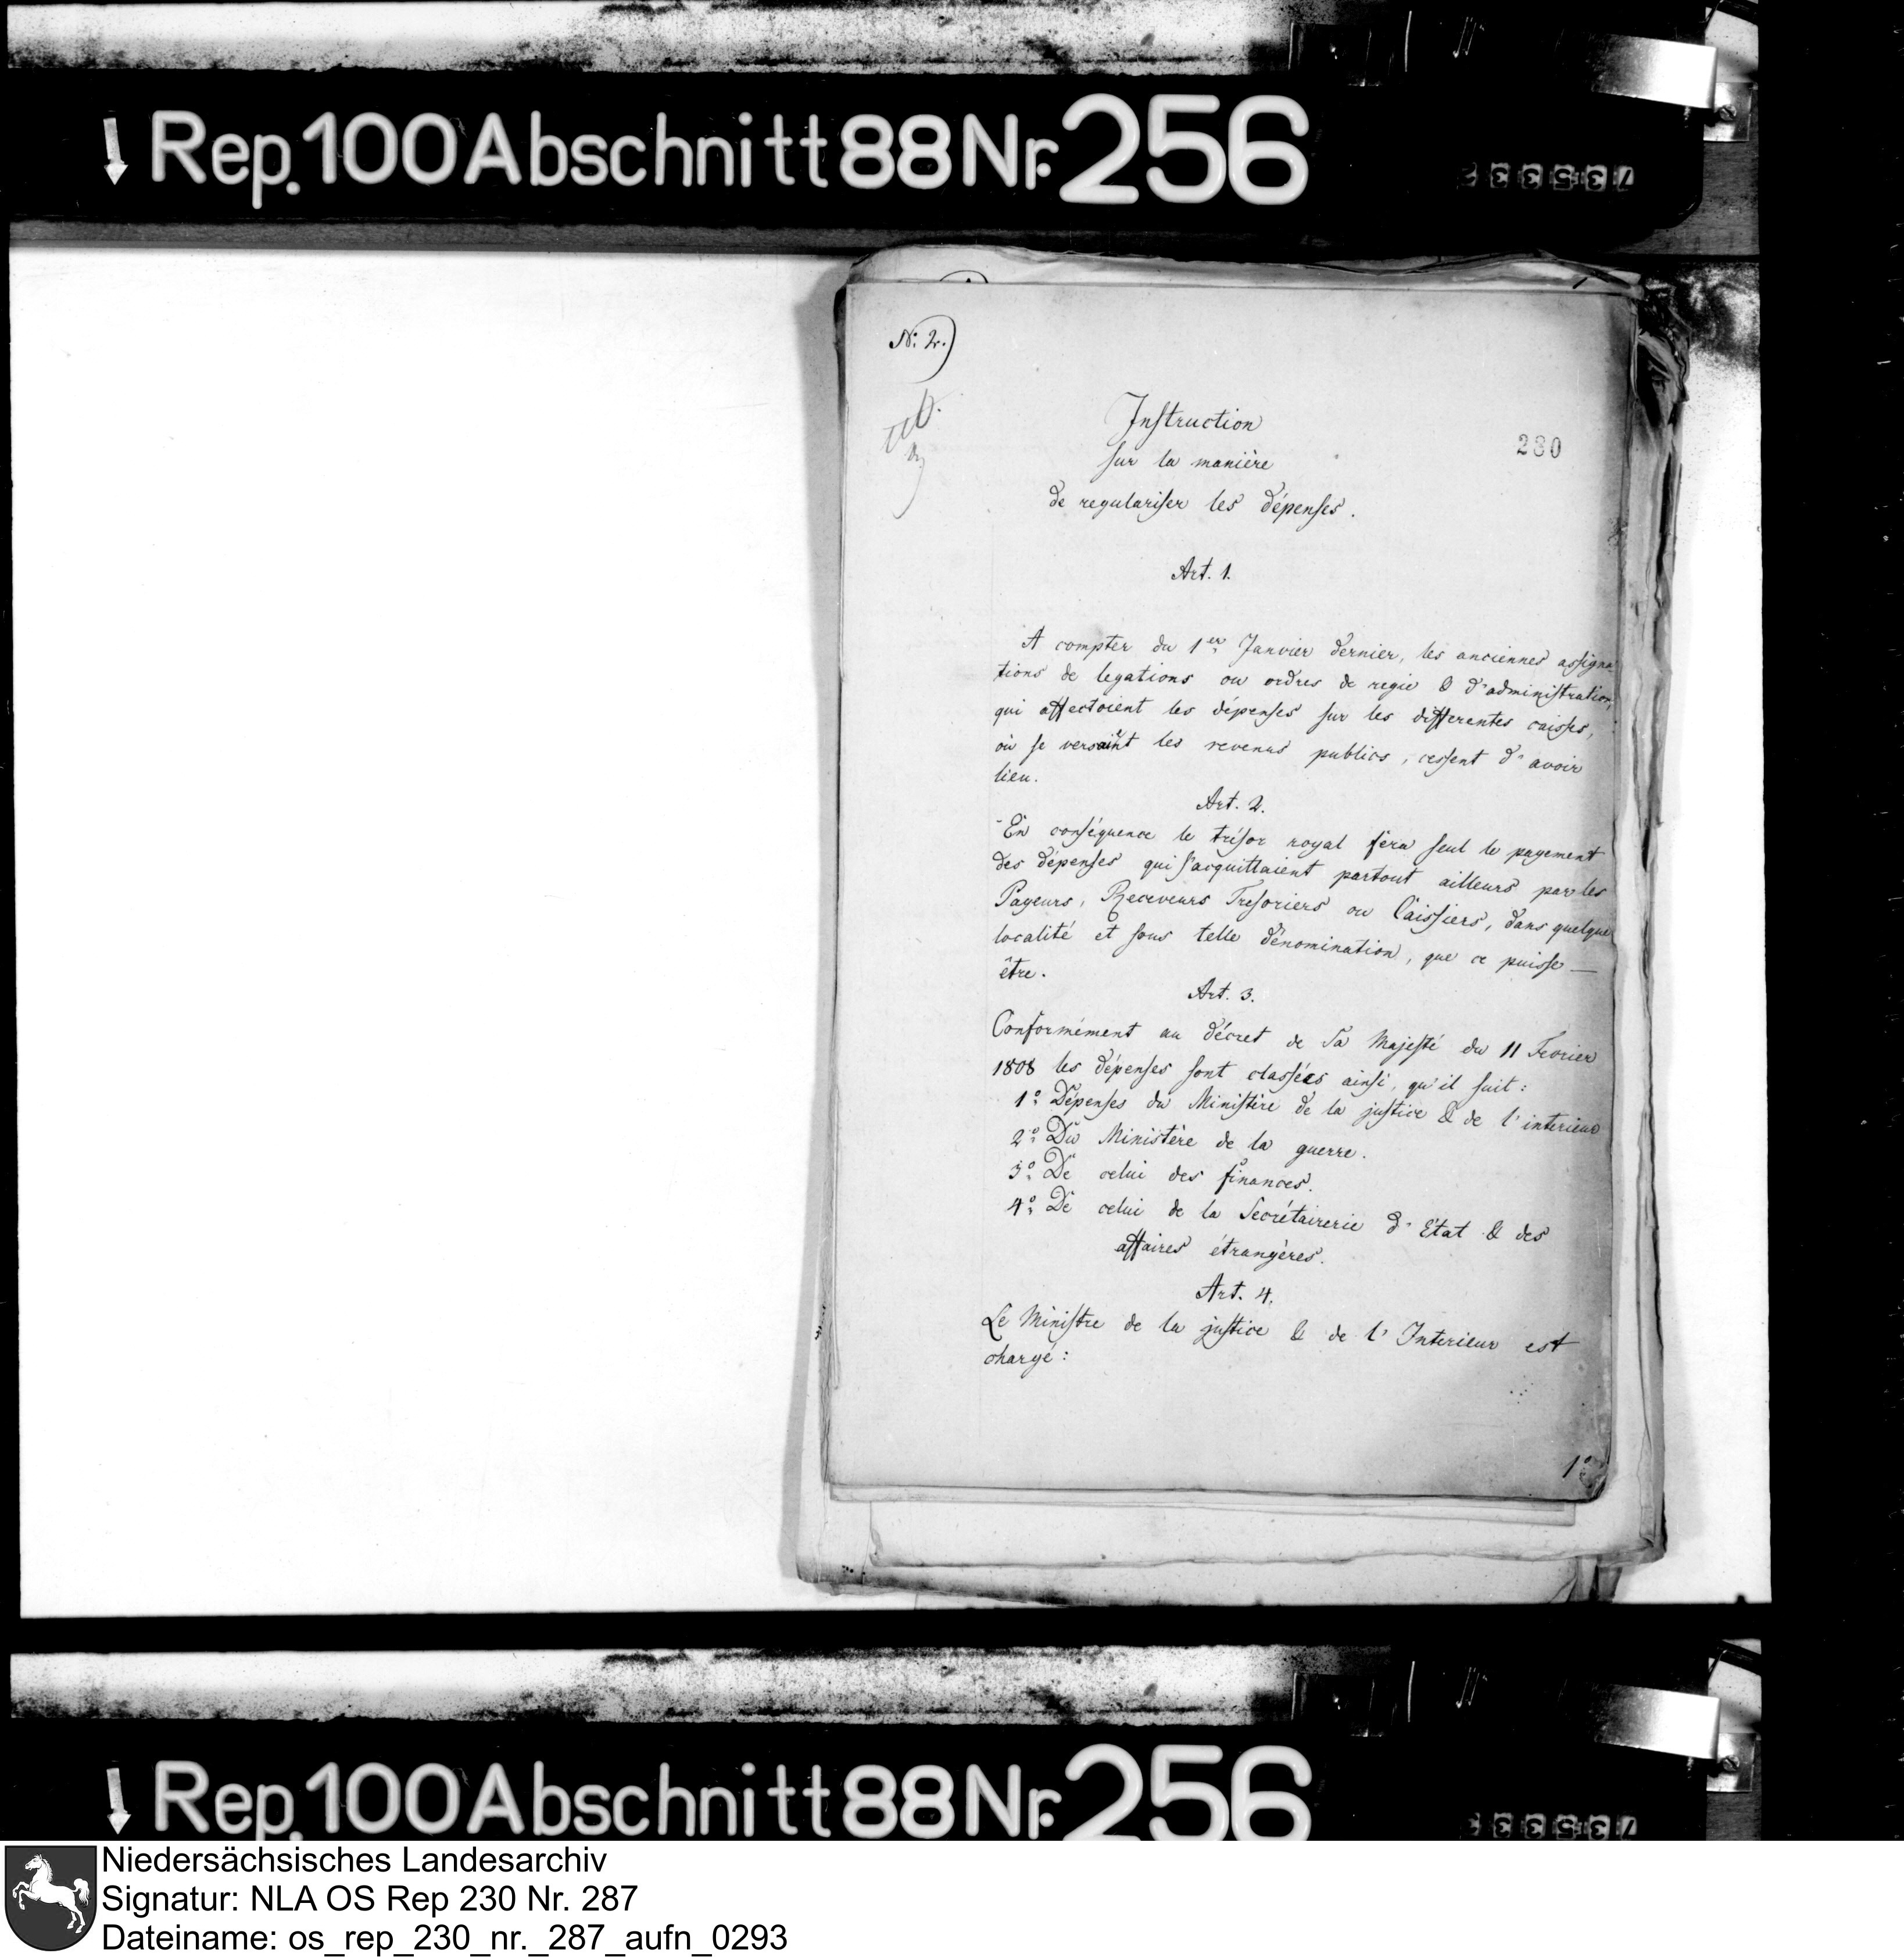 Rep. 100 Abschnitt 88 Nr. 256
N: 2.)
Instruction
280
sur la manière
de regulariser les dépenses.
Art. 1.
A compter du 1er Janvier dernier, les anciennes assigna-
tions de legations ou ordres de regie & d'administration,
qui affectoient les dépenses sur les differentes caisses,
où se versaient les revenus publics, cessent d'avoir
lieu.
Art. 2.
En conséquence le trésor royal fera seul le payement
des dépenses qui s'acquittaient partout ailleurs par les
Payeurs, Receveurs Tresoriers ou Caissiers, dans quelque
localité et sous telle dénomination, que ce puisse
être.
Art. 3.
Conformément au décret de Sa Majesté du 11 Fevrier
1808 les dépenses sont classées ainsi, qu'il suit:
1° Dépenses du Ministère de la justice & de l'interieur
2° Du Ministère de la guerre.
3° De celui des finances.
4° De celui de la Secrétairerie d'Etat & des
affaires étrangères.
Art. 4.
Le Ministre de la justice & de l'Interieur est
chargé:
1°
Rep. 100 Abschnitt 88 Nr. 256
Niedersächsisches Landesarchiv
Signatur: NLA OS Rep 230 Nr. 287
Dateiname: os_rep_230_nr._287_aufn_0293